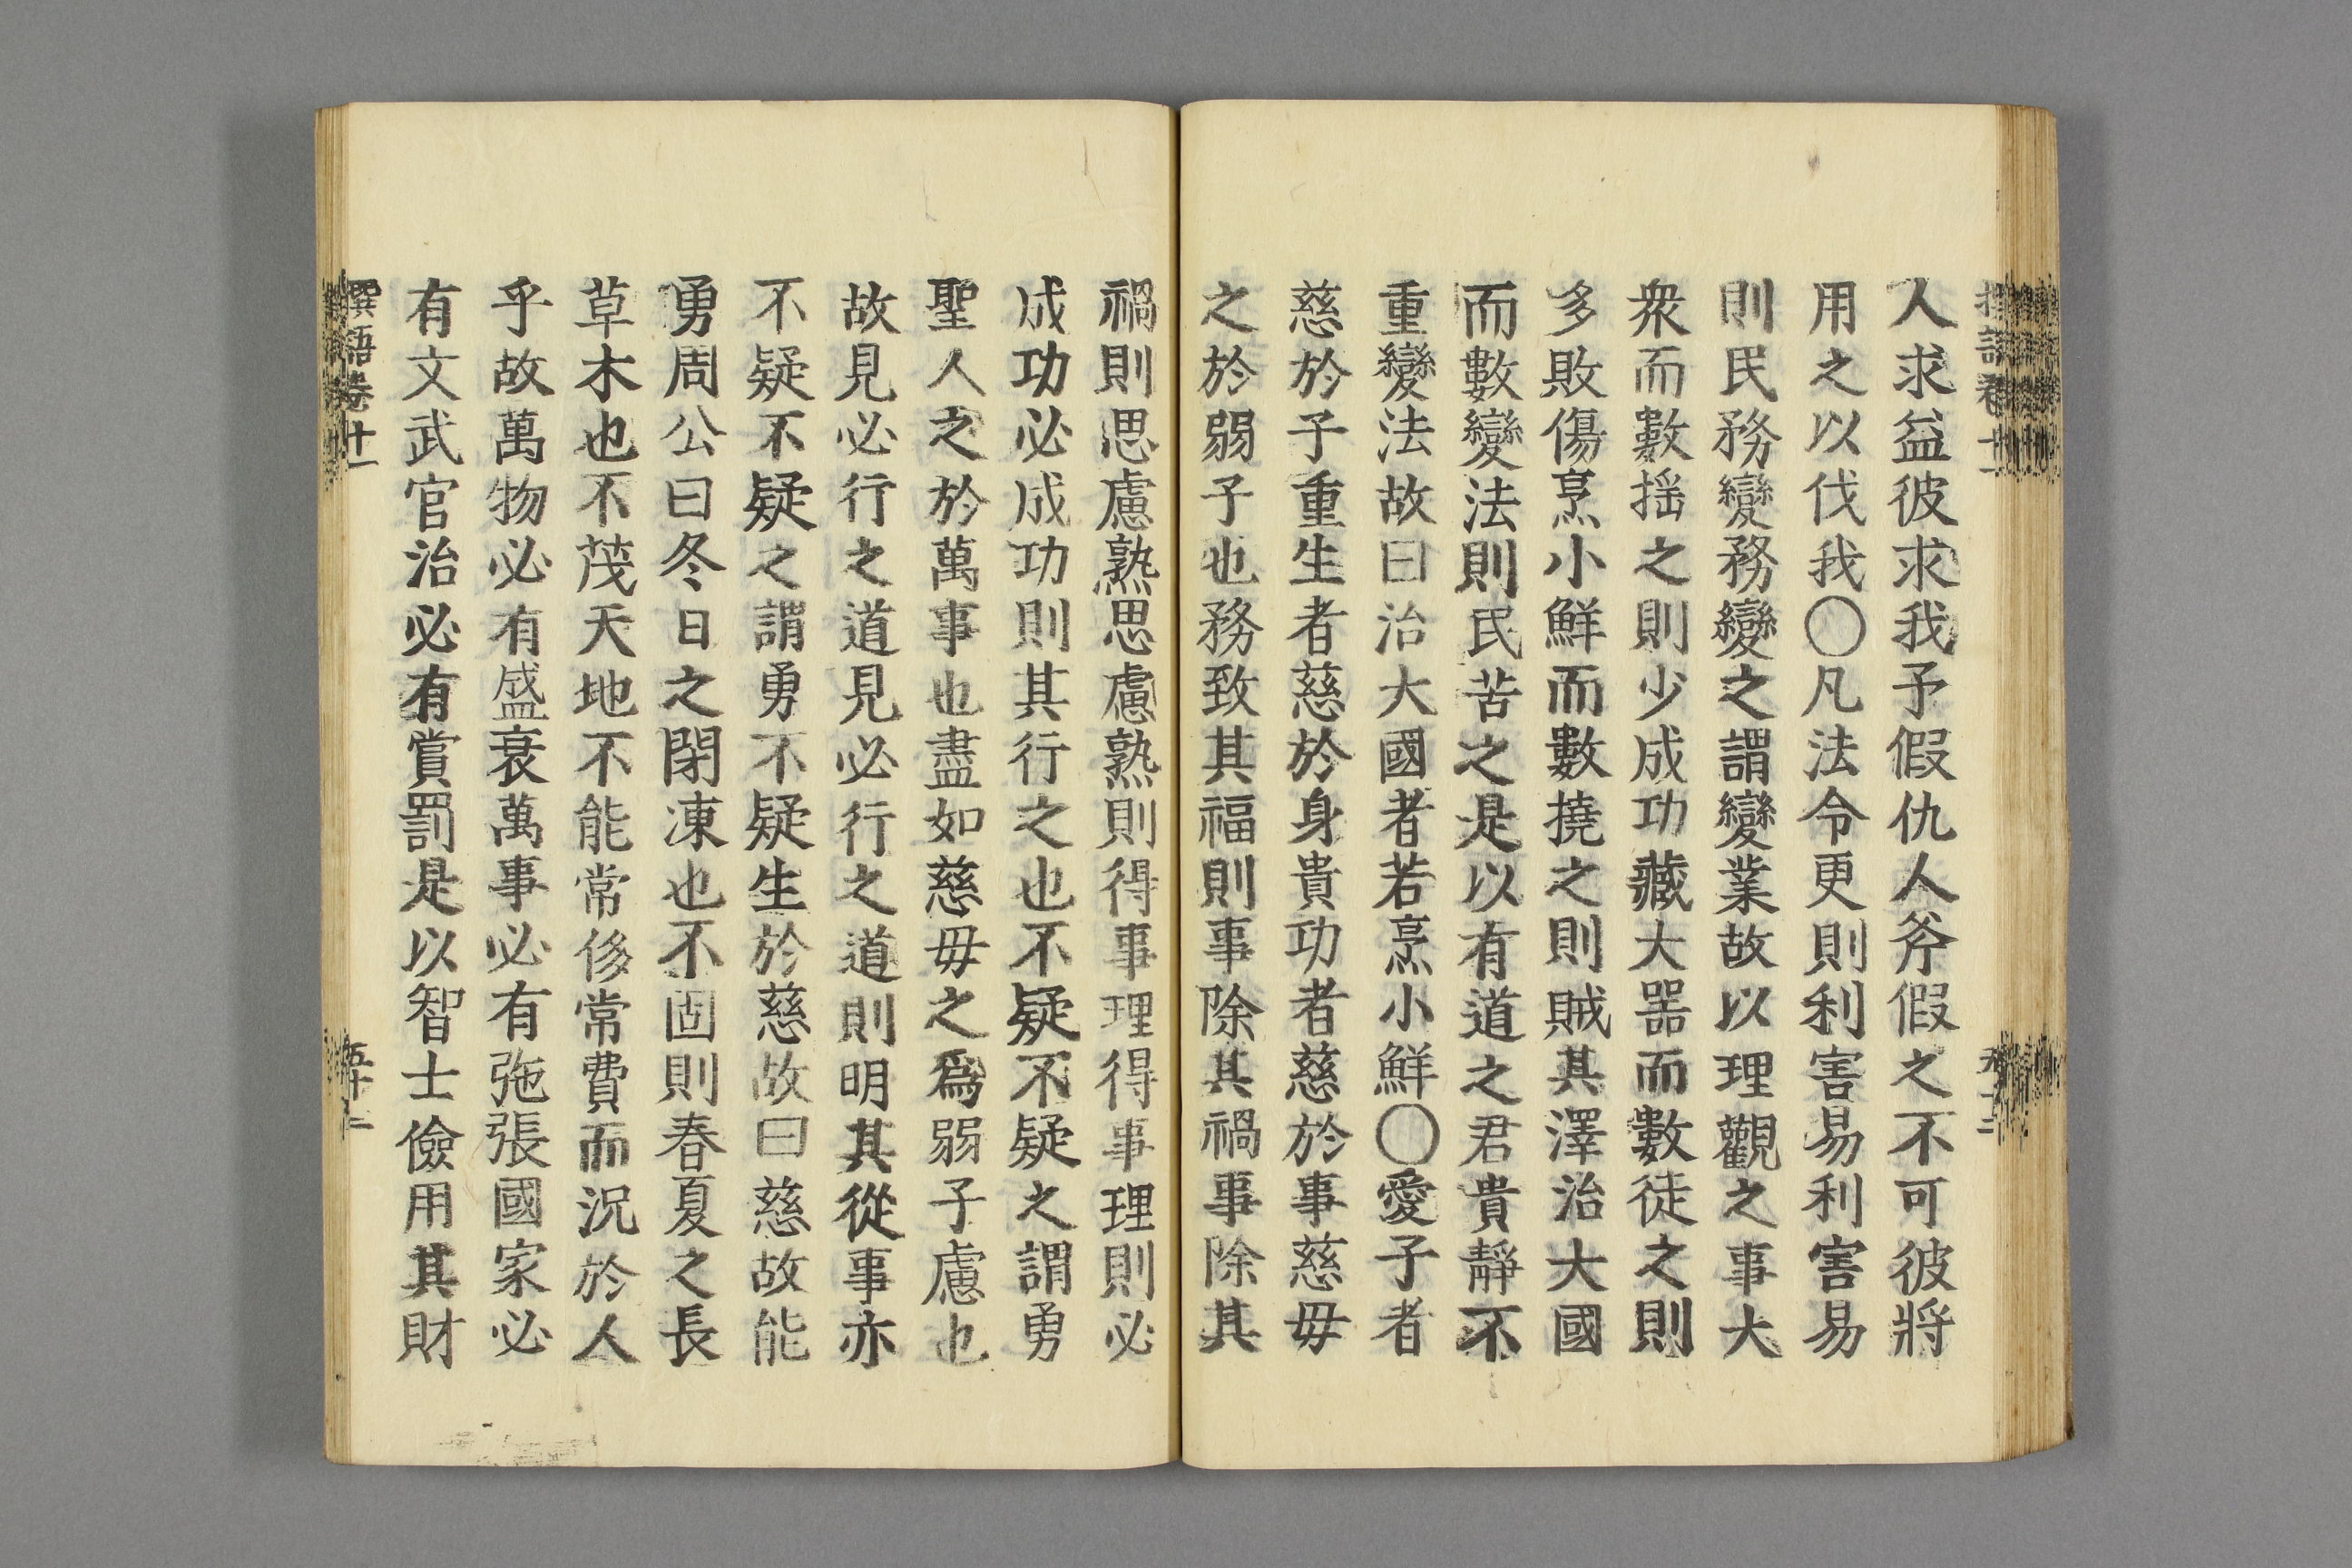 人求益彼求我予假仇人斧假之不可彼將
用之以伐我〇凡法令更則利害易利害易
則民務變務變之謂變業故以理觀之事大
衆而數揺之則少成功藏大噐而數徒之則
多敗傷烹小鮮而數撓之則賊其澤治大國
而數變法則民苦之是以有道之君貴靜不
重變法故曰治大國者若烹小鮮〇愛子者
慈於子重生者慈於身貴功者慈於事慈毋
之於弱子也務致其福則事除其禍事除其
禍則思慮熟思慮熟則得事理得事理則必
成功必成功則其行之也不疑不疑之謂勇
聖人之於萬事也盡如慈毋之爲弱子慮也
故見必行之道見必行之道則明其從事亦
不疑不疑之謂勇不疑生於慈故曰慈故能
勇周公曰冬日之閉凍也不固則春夏之長
草木也不茂天地不能常侈常費而況於人
乎故萬物必有盛衰萬事必有弛張國家必
有文武官治必有賞罰是以智士儉用其財
撰語卷十一
五十二